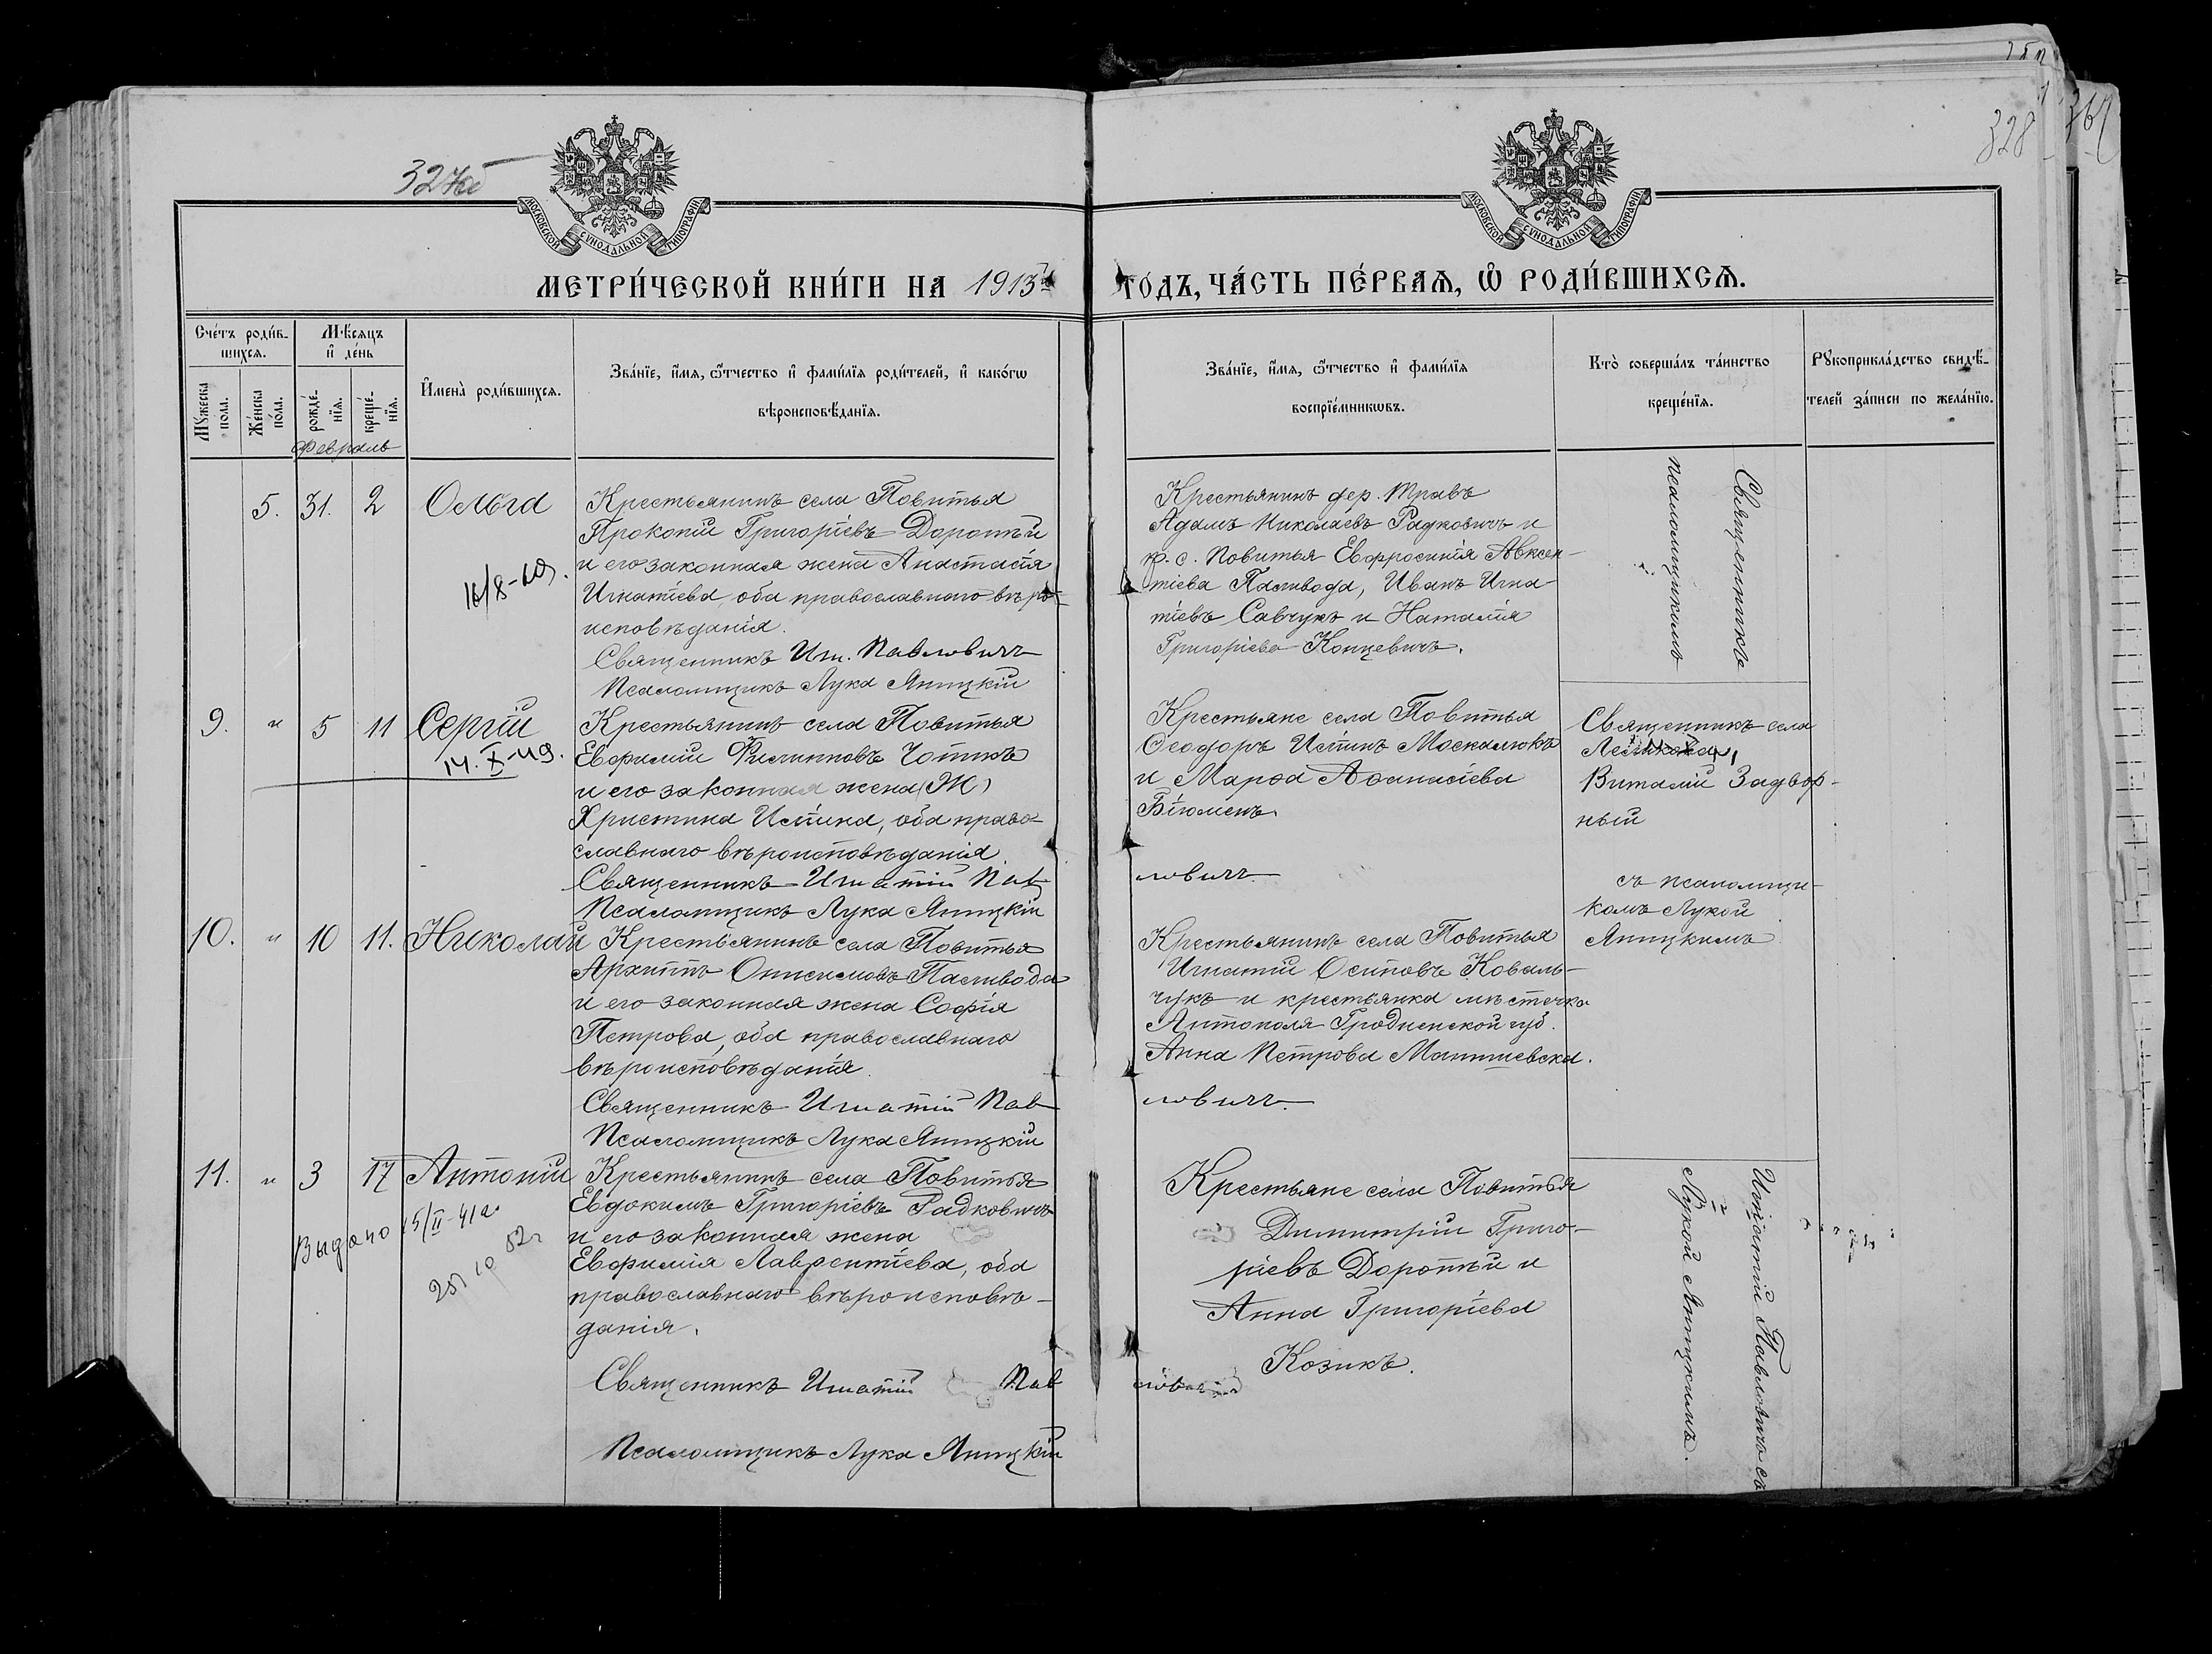 327об
328
МОСКОВСКОЙ СУНОДАЛЬНОЙ ТИПОГРАФІИ
МОСКОВСКОЙ СУНОДАЛЬНОЙ ТИПОГРАФІИ
МЕТРИ́ЧЕСКОЙ КНИ́ГИ НА 1913й ГО́ДЪ, ЧА́СТЬ ПЕ́РВАѦ, Ѡ҆ РОДИ́ВШИХСѦ.
Сче́тъ роди́в-
шихсѧ.
Мꙋ́жеска
пола.
Же́нска
по́ла.
Мѣ́сѧцъ
и҆ де́нь
рожде́-
нїѧ.
креще́-
нїѧ.
И҆мена̀ роди́вшихсѧ.
Зва́нїе, и҆́мѧ, ѻ҆́тчество и҆ фами́лїѧ роди́телей, и҆ како́гѡ
вѣроисповѣ́данїѧ.
Зва́нїе, и҆́мѧ, ѻ҆́тчество и҆ фами́лїѧ
воспрїе́мникѡвъ.
Кто̀ соверша́лъ та́инство
креще́нїѧ.
Рꙋкоприкла́дство свидѣ́-
телей за́писи по жела́нїю.
Февраль
5. 31. 2 Ольга
16/8-60.
Крестьянинъ села Повитья
Прокопій Григоріевъ Доротѣй
и его законная жена Анастасія
Игнатіева, оба православнаго вѣро-
исповѣданія.
Священникъ Игн. Павловичъ
Псаломщикъ Лука Япицкій
Крестьянинъ дер. Травъ
Адамъ Николаевъ Радковичъ и
кр. с. Повитья Евфросинія Авксен-
тіева Паливода, Иванъ Игна-
тіевъ Савчукъ и Наталія
Григоріева Концевичъ.
Священникъ
псаломщикомъ
9. " 5 11 Сергій
14.X-49.
Крестьянинъ села Повитья
Евфимій Филипповъ Чотикъ
и его законная жена (Ж)
Христина Иліина, оба право-
славнаго вѣроисповѣданія.
Священникъ Игнатій Пав
Псаломщикъ Лука Япицкій
Крестьяне села Повитья
Ѳеодоръ Иліинъ Москалюкъ
и Марѳа Аѳанасіева
ловичъ
Священникъ села
Виталій Задвор-
ный
съ псаломщи-
комъ Лукой
Япицкимъ
10. " 10 11. Николай
Крестьянинъ села Повитья
Архиппъ Онисимовъ Паливода
и его законная жена Софія
Петрова, оба православнаго
вѣроисповѣданія.
Священникъ Игнатій Пав
Псаломщикъ Лука Япицкій
Крестьянинъ села Повитья
Игнатій Осиповъ Коваль-
чукъ и крестьянка мѣстечка
Антополя Гродненской губ.
Анна Петрова
ловичъ
11. " 3 17 Антоній
Выдано 15/II-41г.
Крестьянинъ села Повитья
Евдокимъ Григоріевъ Радковичъ
и его законная жена
Евфимія Лаврентіева, оба
православнаго вѣроисповѣ-
данія.
Священникъ Игнатій Пав
Псаломщикъ Лука Япицкій
Крестьяне села Повитья
Димитрій Григо-
ріевъ Доротѣй и
Анна Григоріева
Козикъ.
Игнатій Павловичъ съ
Лукой Япицкимъ.